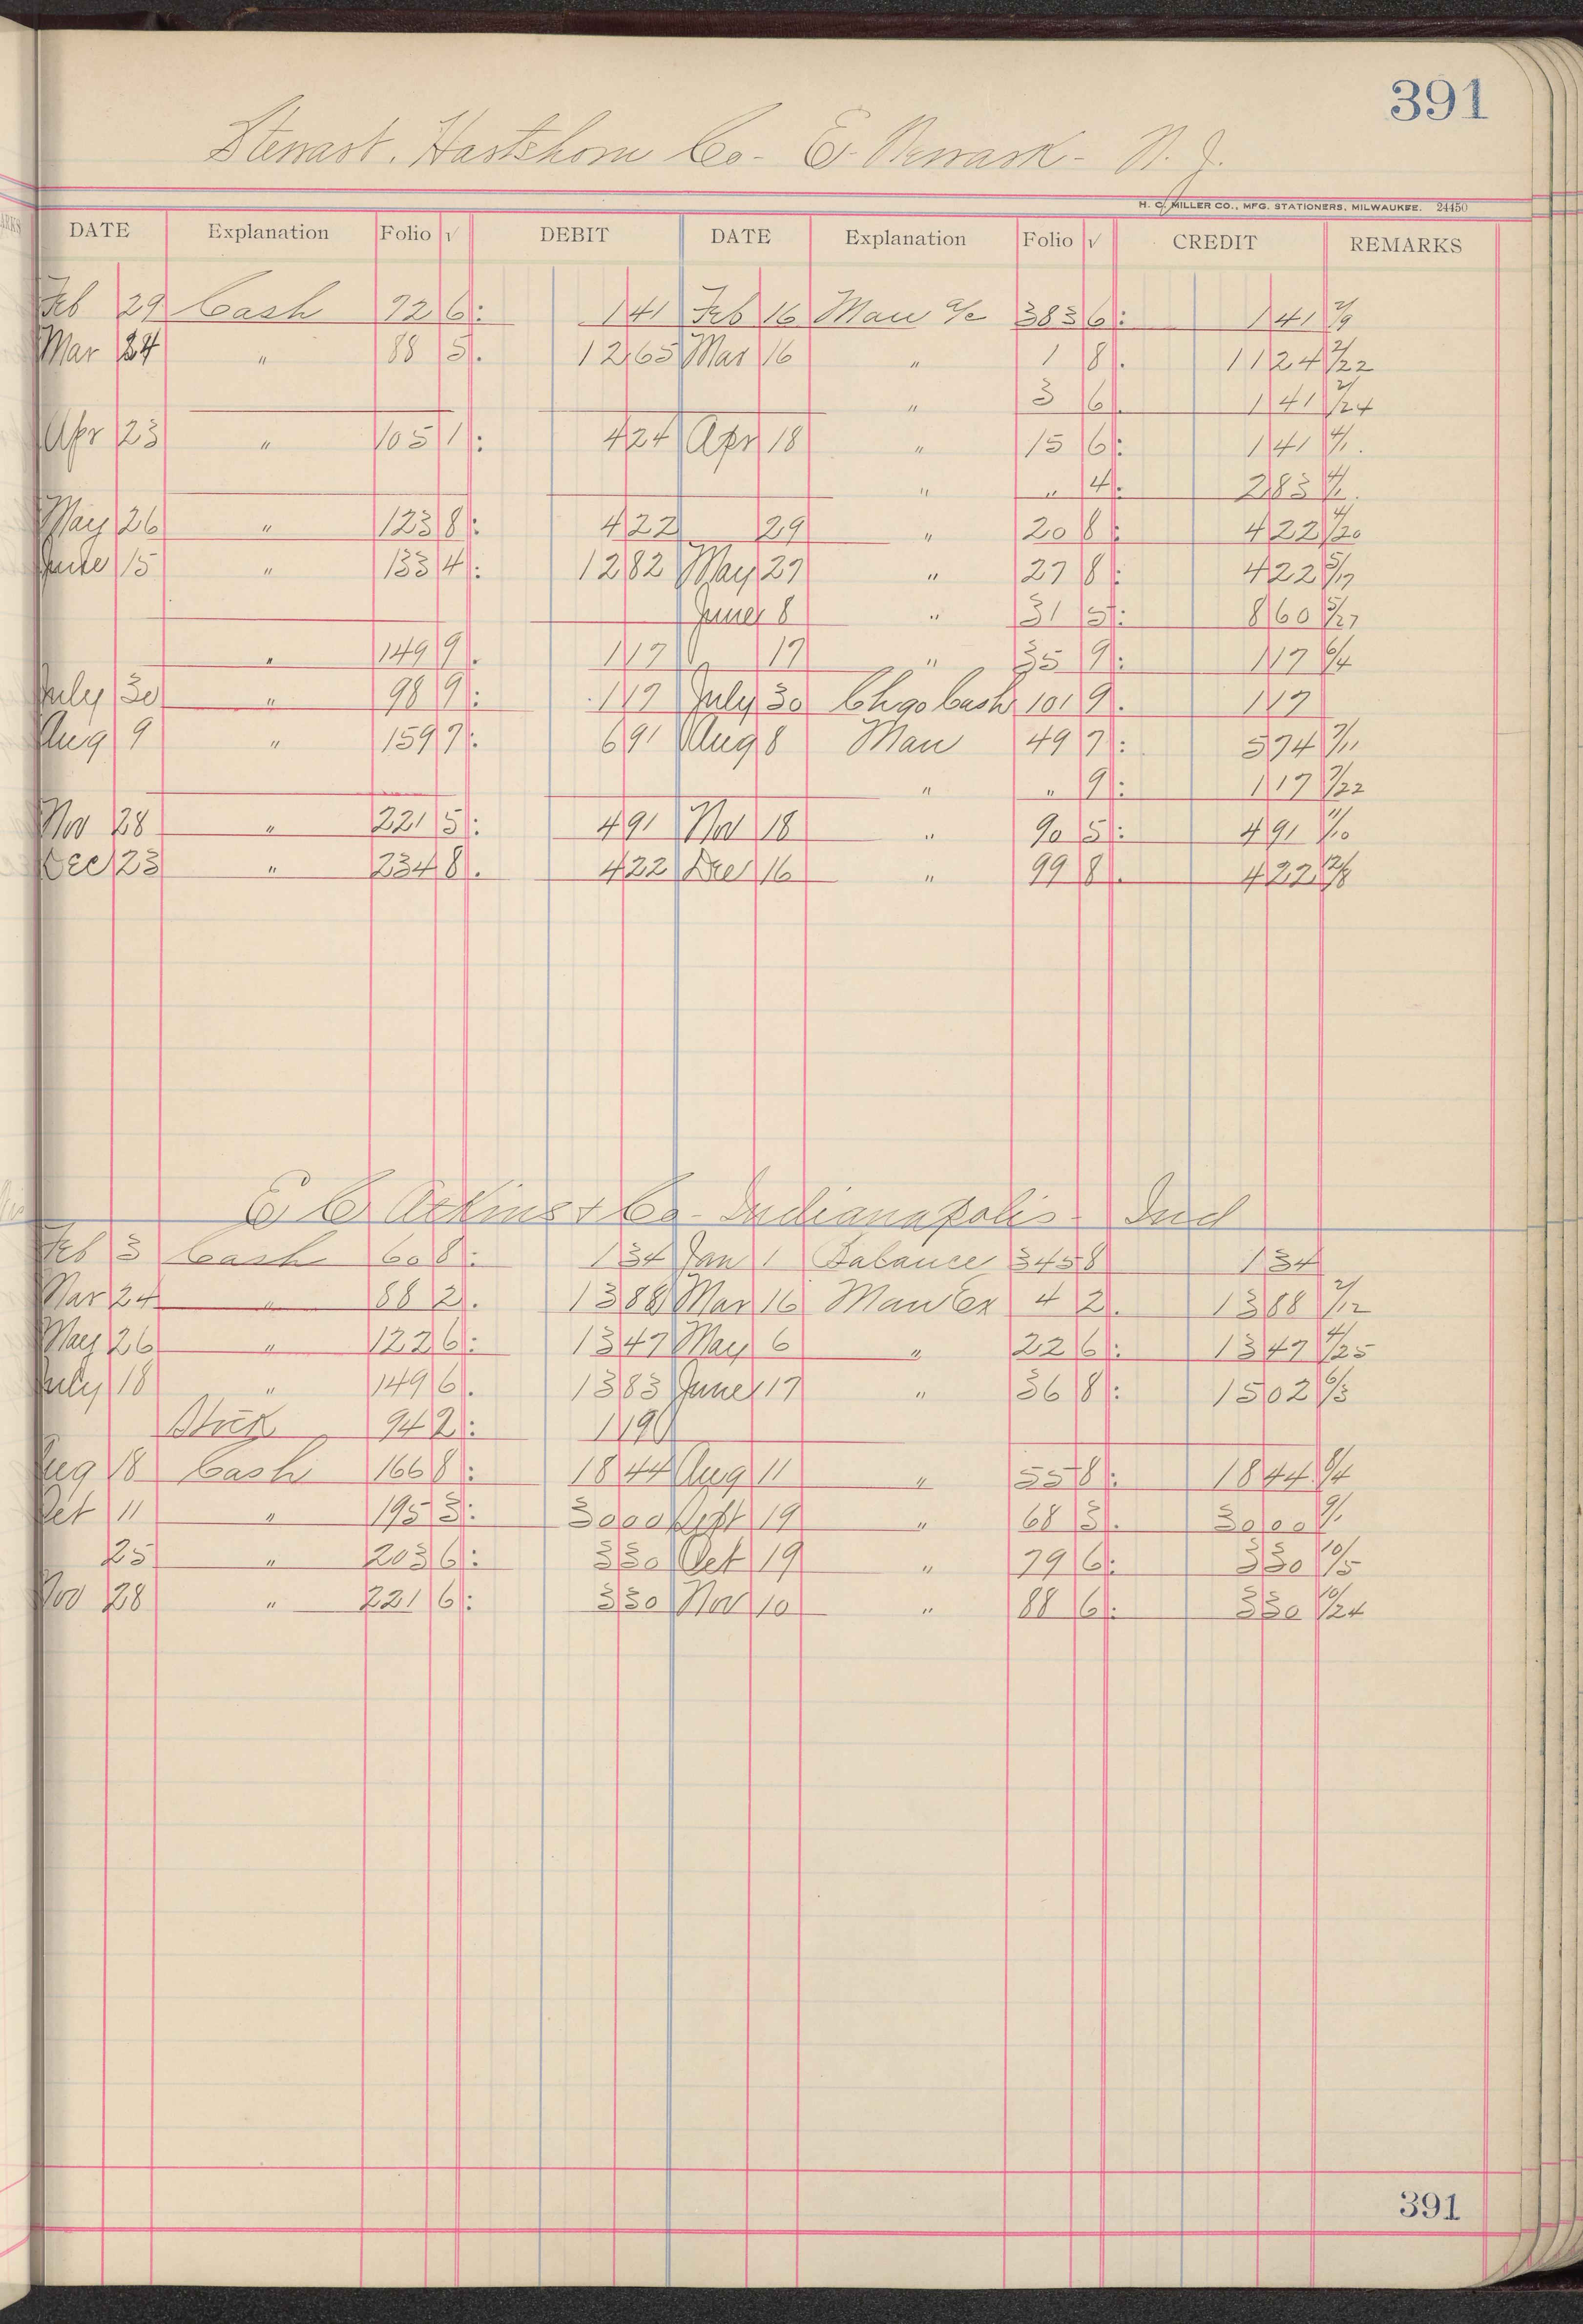 391
Stewart. Hartshorn Co - E. Newark - N. J.
H. C. MILLER CO., MFG. STATIONERS, MILWAUKEE. 24450
DATE Explanation Folio √ DEBIT DATE Explanation Folio √ CREDIT REMARKS
Feb 29 Cash 72 6: 1 41 Feb 16 Man a/c 383 6: 1 41 2/9
Mar 24 " 88 5. 12 65 Mar 16 " 1 8. 11 24 2/22
" 3 6. 1 41 2/24
Apr 23 " 105 1: 4 24 Apr 18 " 15 6: 1 41 4/1.
" " 4. 2 83 4/1.
May 26 " 123 8: 4 22 29 " 20 8: 4 22 4/20
June 15 " 133 4: 12 82 May 27 " 27 8: 4 22 5/17
June 8 " 31 5: 8 60 5/27
" 149 9. 1 17 17 " 35 9: 1 17 6/4
July 30 " 98 9: 1 17 July 30 Chgo Cash 101 9. 1 17
Aug 9 " 159 7: 6 91 Aug 8 Man 49 7: 5 74 7/11
" " 9: 1 17 7/22
Nov 28 " 221 5: 4 91 Nov 18 " 90 5: 4 91 11/10
Dec 23 " 234 8. 4 22 Dec 16 " 99 8. 4 22 12/8
E C Atkins & Co - Indianapolis - Ind
Feb 3 Cash 60 8: 1 34 Jan 1 Balance 345 8 1 34
Mar 24 " 88 2. 13 88 Mar 16 Man Ex 4 2. 13 88 2/12
May 26 " 122 6: 13 47 May 6 " 22 6: 13 47 4/25
July 18 " 149 6. 13 83 June 17 " 36 8: 15 02 6/3
94 2: 1 19
Aug 18 Cash 166 8: 18 44 Aug 11 " 55 8: 18 44 8/4
Oct 11 " 195 3: 30 00 Sept 19 " 68 3. 30 00 9/1
25 " 203 6: 3 30 Oct 19 " 79 6: 3 30 10/5
Nov 28 " 221 6: 3 30 Nov 10 " 88 6: 3 30 10/24
391